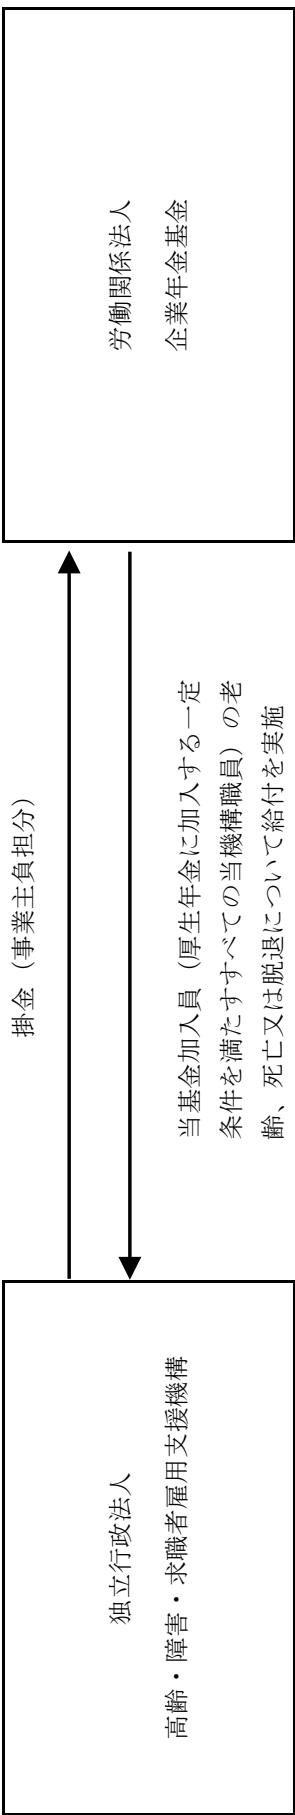 独立行政法人
高齢・障害・求職者雇用支援機構
掛金（事業主負担分）
当基金加入員（厚生年金に加入する一定
条件を満たすすべての当機構職員）の老
齢、死亡又は脱退について給付を実施
労働関係法人
企業年金基金